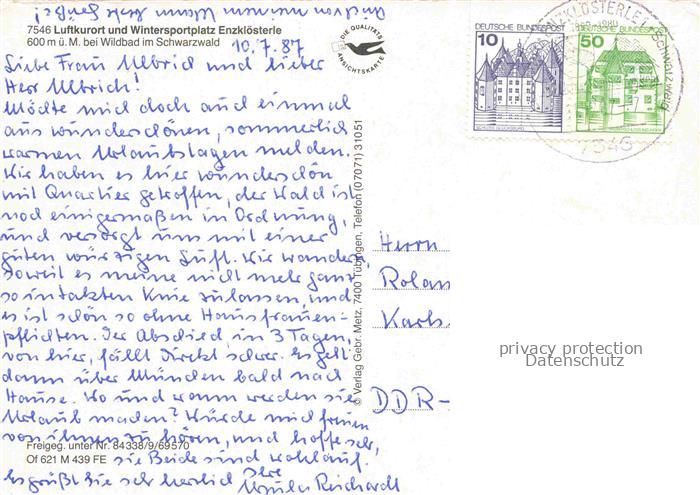 7546 Luftkurort und Wintersportplatz Enzklösterle
600 m ü. M. bei Wildbad im Schwarzwald
10.7.87
DIE QUALITÄTS
ANSICHTSKARTE
DEUTSCHE BUNDESPOST
10
DEUTSCHE BUNDESPOST
50
7546
Liebe Frau Ulbrich und lieber
Herr Ulbrich!
Möchte mich doch auch einmal
aus wunderschönen, sommerlich
warmen Urlaubstagen melden.
Wir haben es hier wunderschön
mit Quartier getroffen, der Wald ist
noch einigermaßen in Ordnung,
und versorgt uns mit einer
guten würzigen Luft. Wir wandern,
soweit es meine nicht mehr ganz
so intakten Knie zulassen, und
es ist schön so ohne Hausfrauen-
pflichten. Der Abschied, in 3 Tagen,
von hier, fällt direkt schwer. Es geht
dann über München bald nach
Hause. Wo und wann werden sie
Urlaub machen? Würde mich freuen
von ihnen zu hören, und hoffe sehr,
sie Beide sind wohlauf.
Es grüßt Sie sehr herzlich Ihre
Ursula Reichardt
Freigeg. unter Nr. 84338/9/69570
Of 621 M 439 FE
© Verlag Gebr. Metz, 7400 Tübingen, Telefon (07071) 31051
Herrn
Rolan
Karls
DDR-
privacy protection
Datenschutz